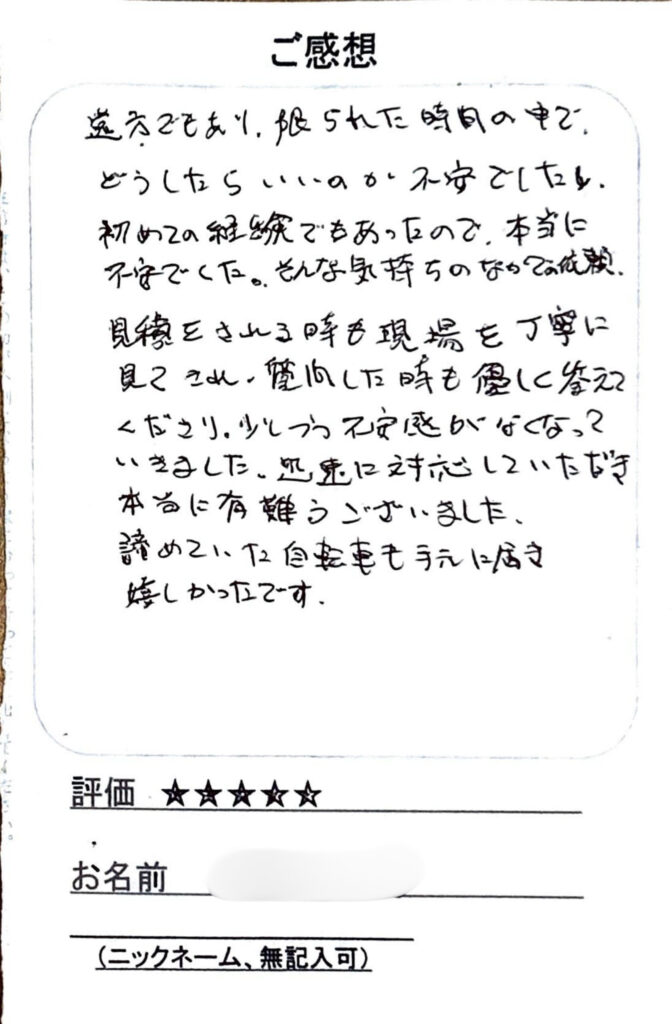 ご感想
遠方でもあり、限られた時間の中で、
どうしたらいいのか不安でした。
初めての経験でもあったので、本当に
不安でした。そんな気持ちのなかでの依頼。
見積をされる時も現場を丁寧に
見てされ、質問した時も優しく答えて
くださり、少しづつ不安感がなくなって
いきました。迅速に対応していただき
本当に有難うございました。
諦めていた自転車も手元に届き
嬉しかったです。
評価 ☆☆☆☆☆
お名前
(ニックネーム、無記入可)